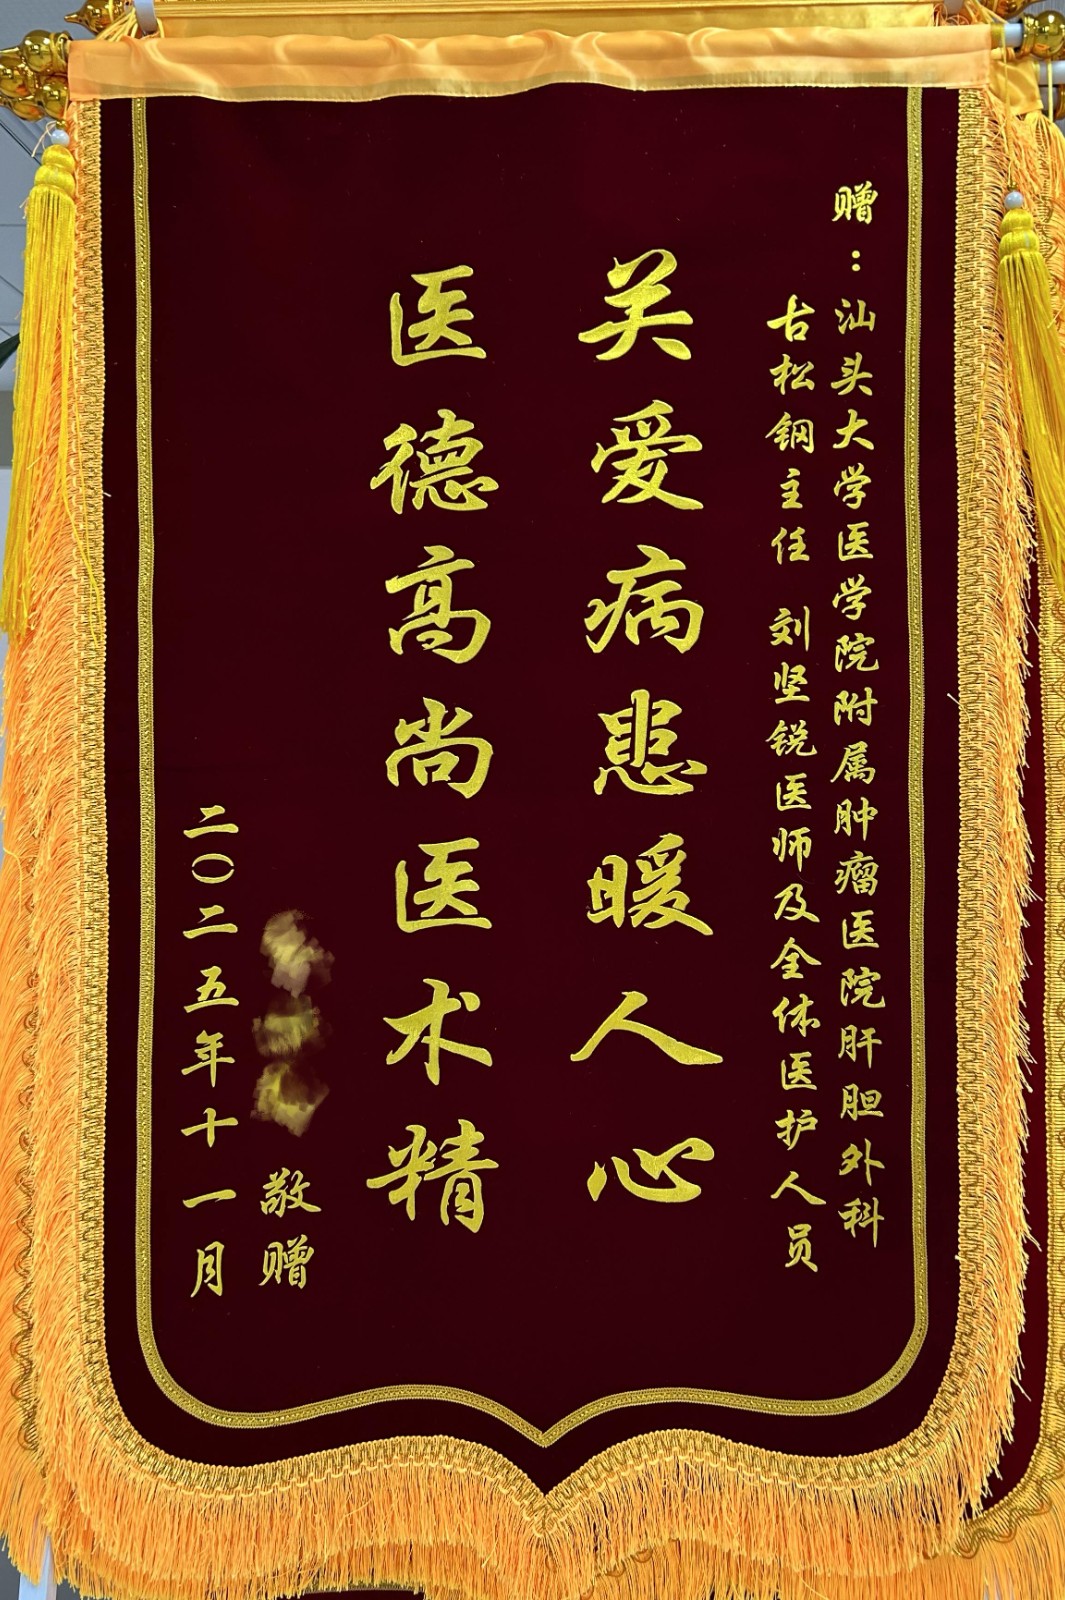 赠：汕头大学医学院附属肿瘤医院肝胆外科
古松钢主任 刘坚锐医师及全体医护人员
关爱病患暖人心
医德高尚医术精
敬赠
二〇二五年十一月